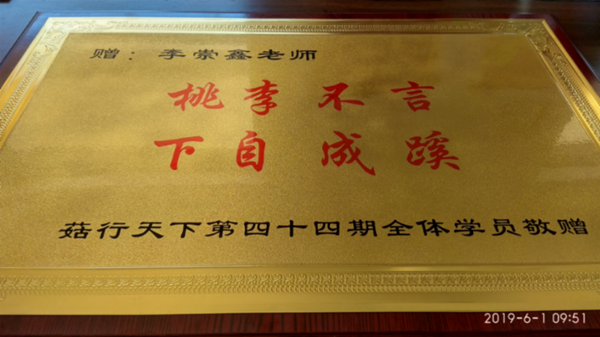 赠：李崇鑫老师
桃李不言
下自成蹊
菇行天下第四十四期全体学员敬赠
2019-6-1 09:51